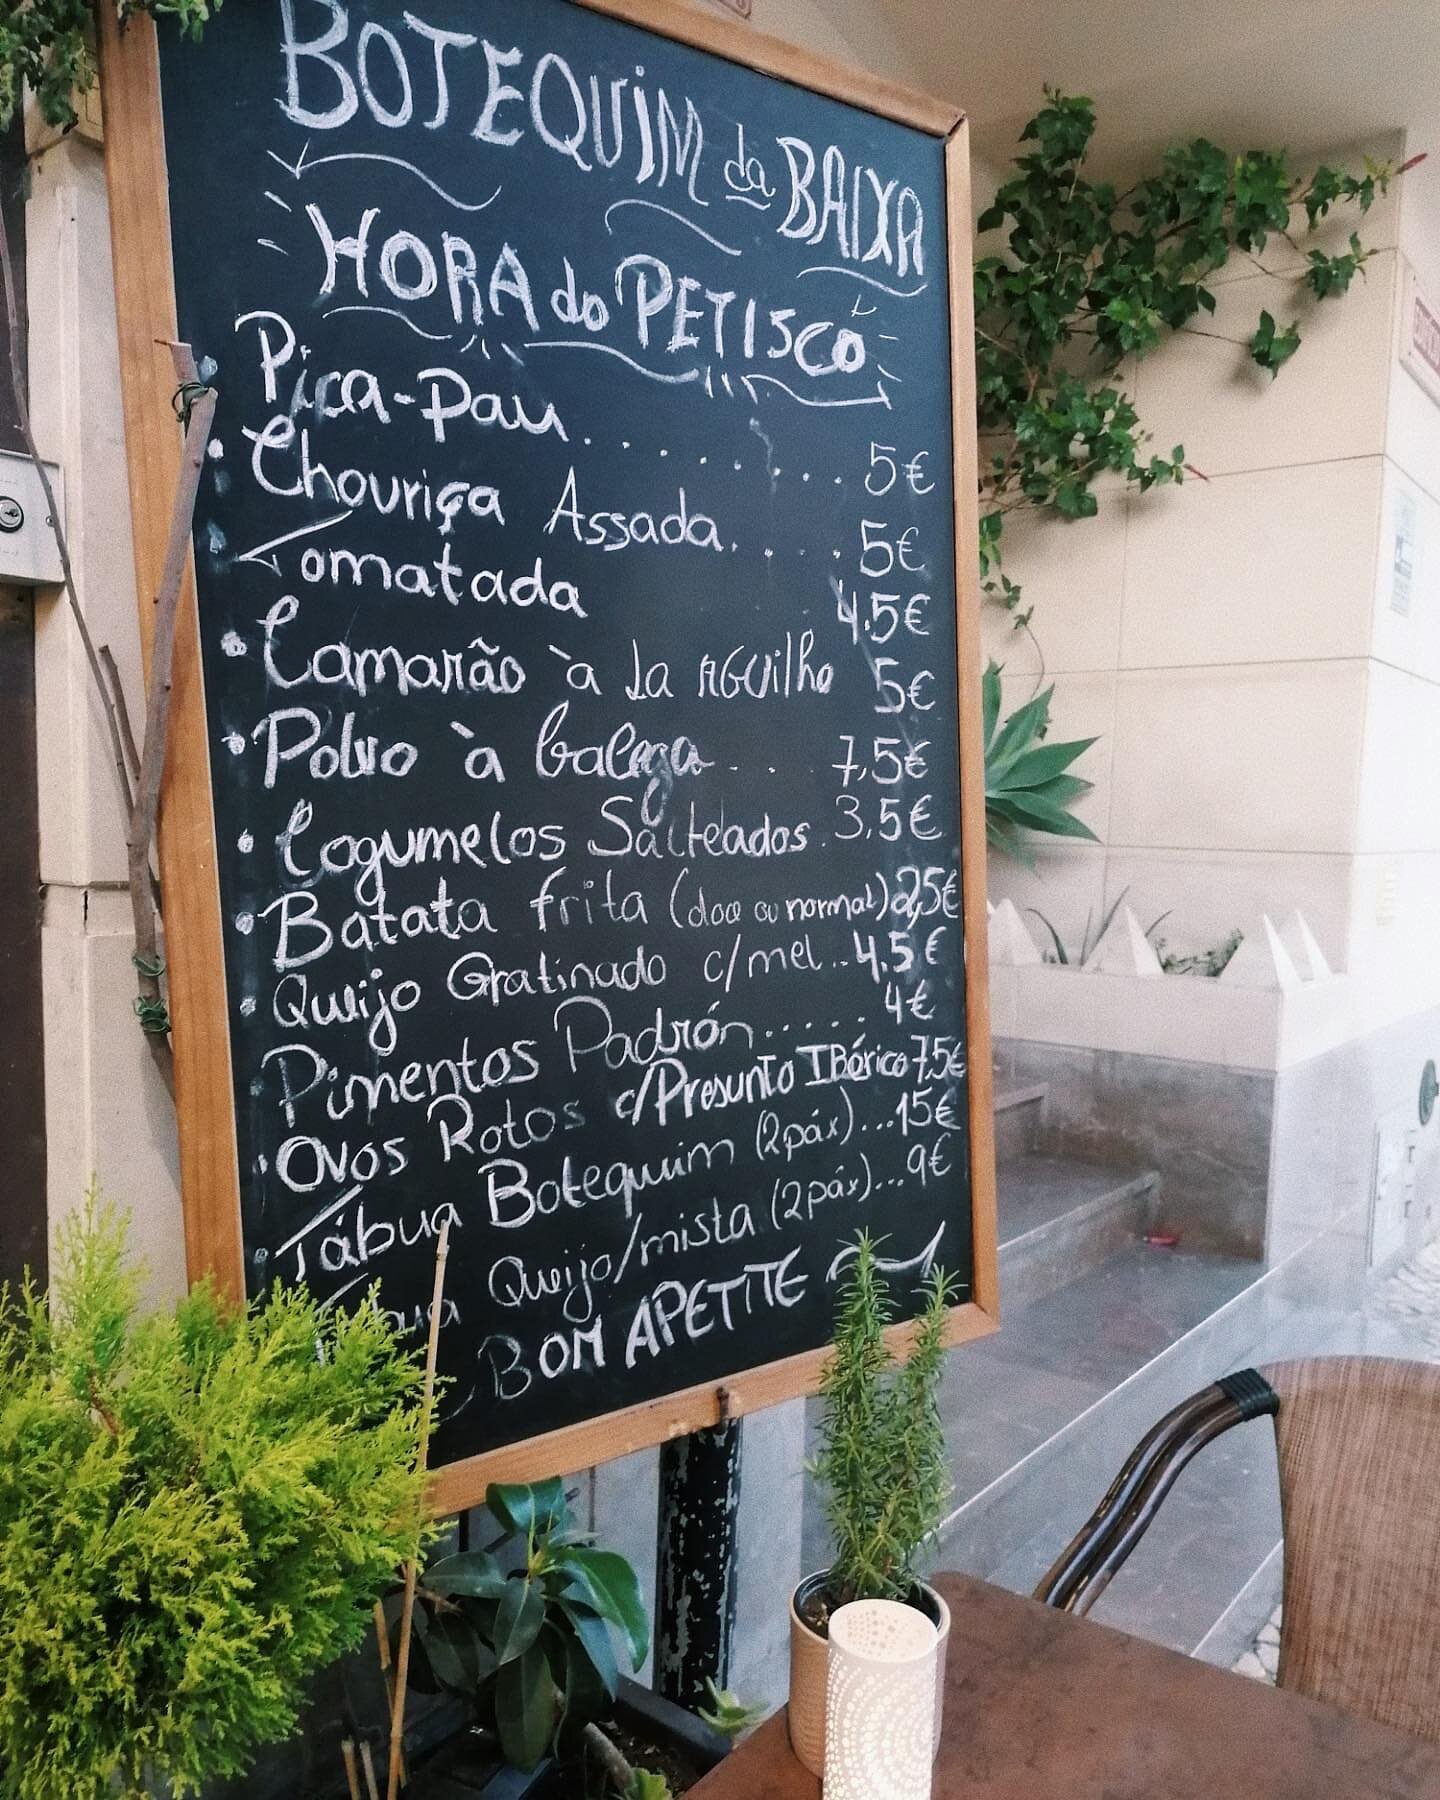 BOTEQUIM da BAIXA
HORA do PETISCO
Pica-Pau......... 5€
• Chouriça Assada..... 5€
• Tomatada 4.5€
• Camarão à la AGUilho 5€
• Polvo à Galega... 7,5€
• Cogumelos Salteados. 3,5€
• Batata frita (doce ou normal) 2,5€
• Queijo Gratinado c/mel.. 4.5€
Pimentos Padrón...... 4€
• Ovos Rotos c/Presunto IBérico 7,5€
• Tábua Botequim (2páx)...15€
Tábua Queijo/mista (2páx)...9€
BOM APETITE